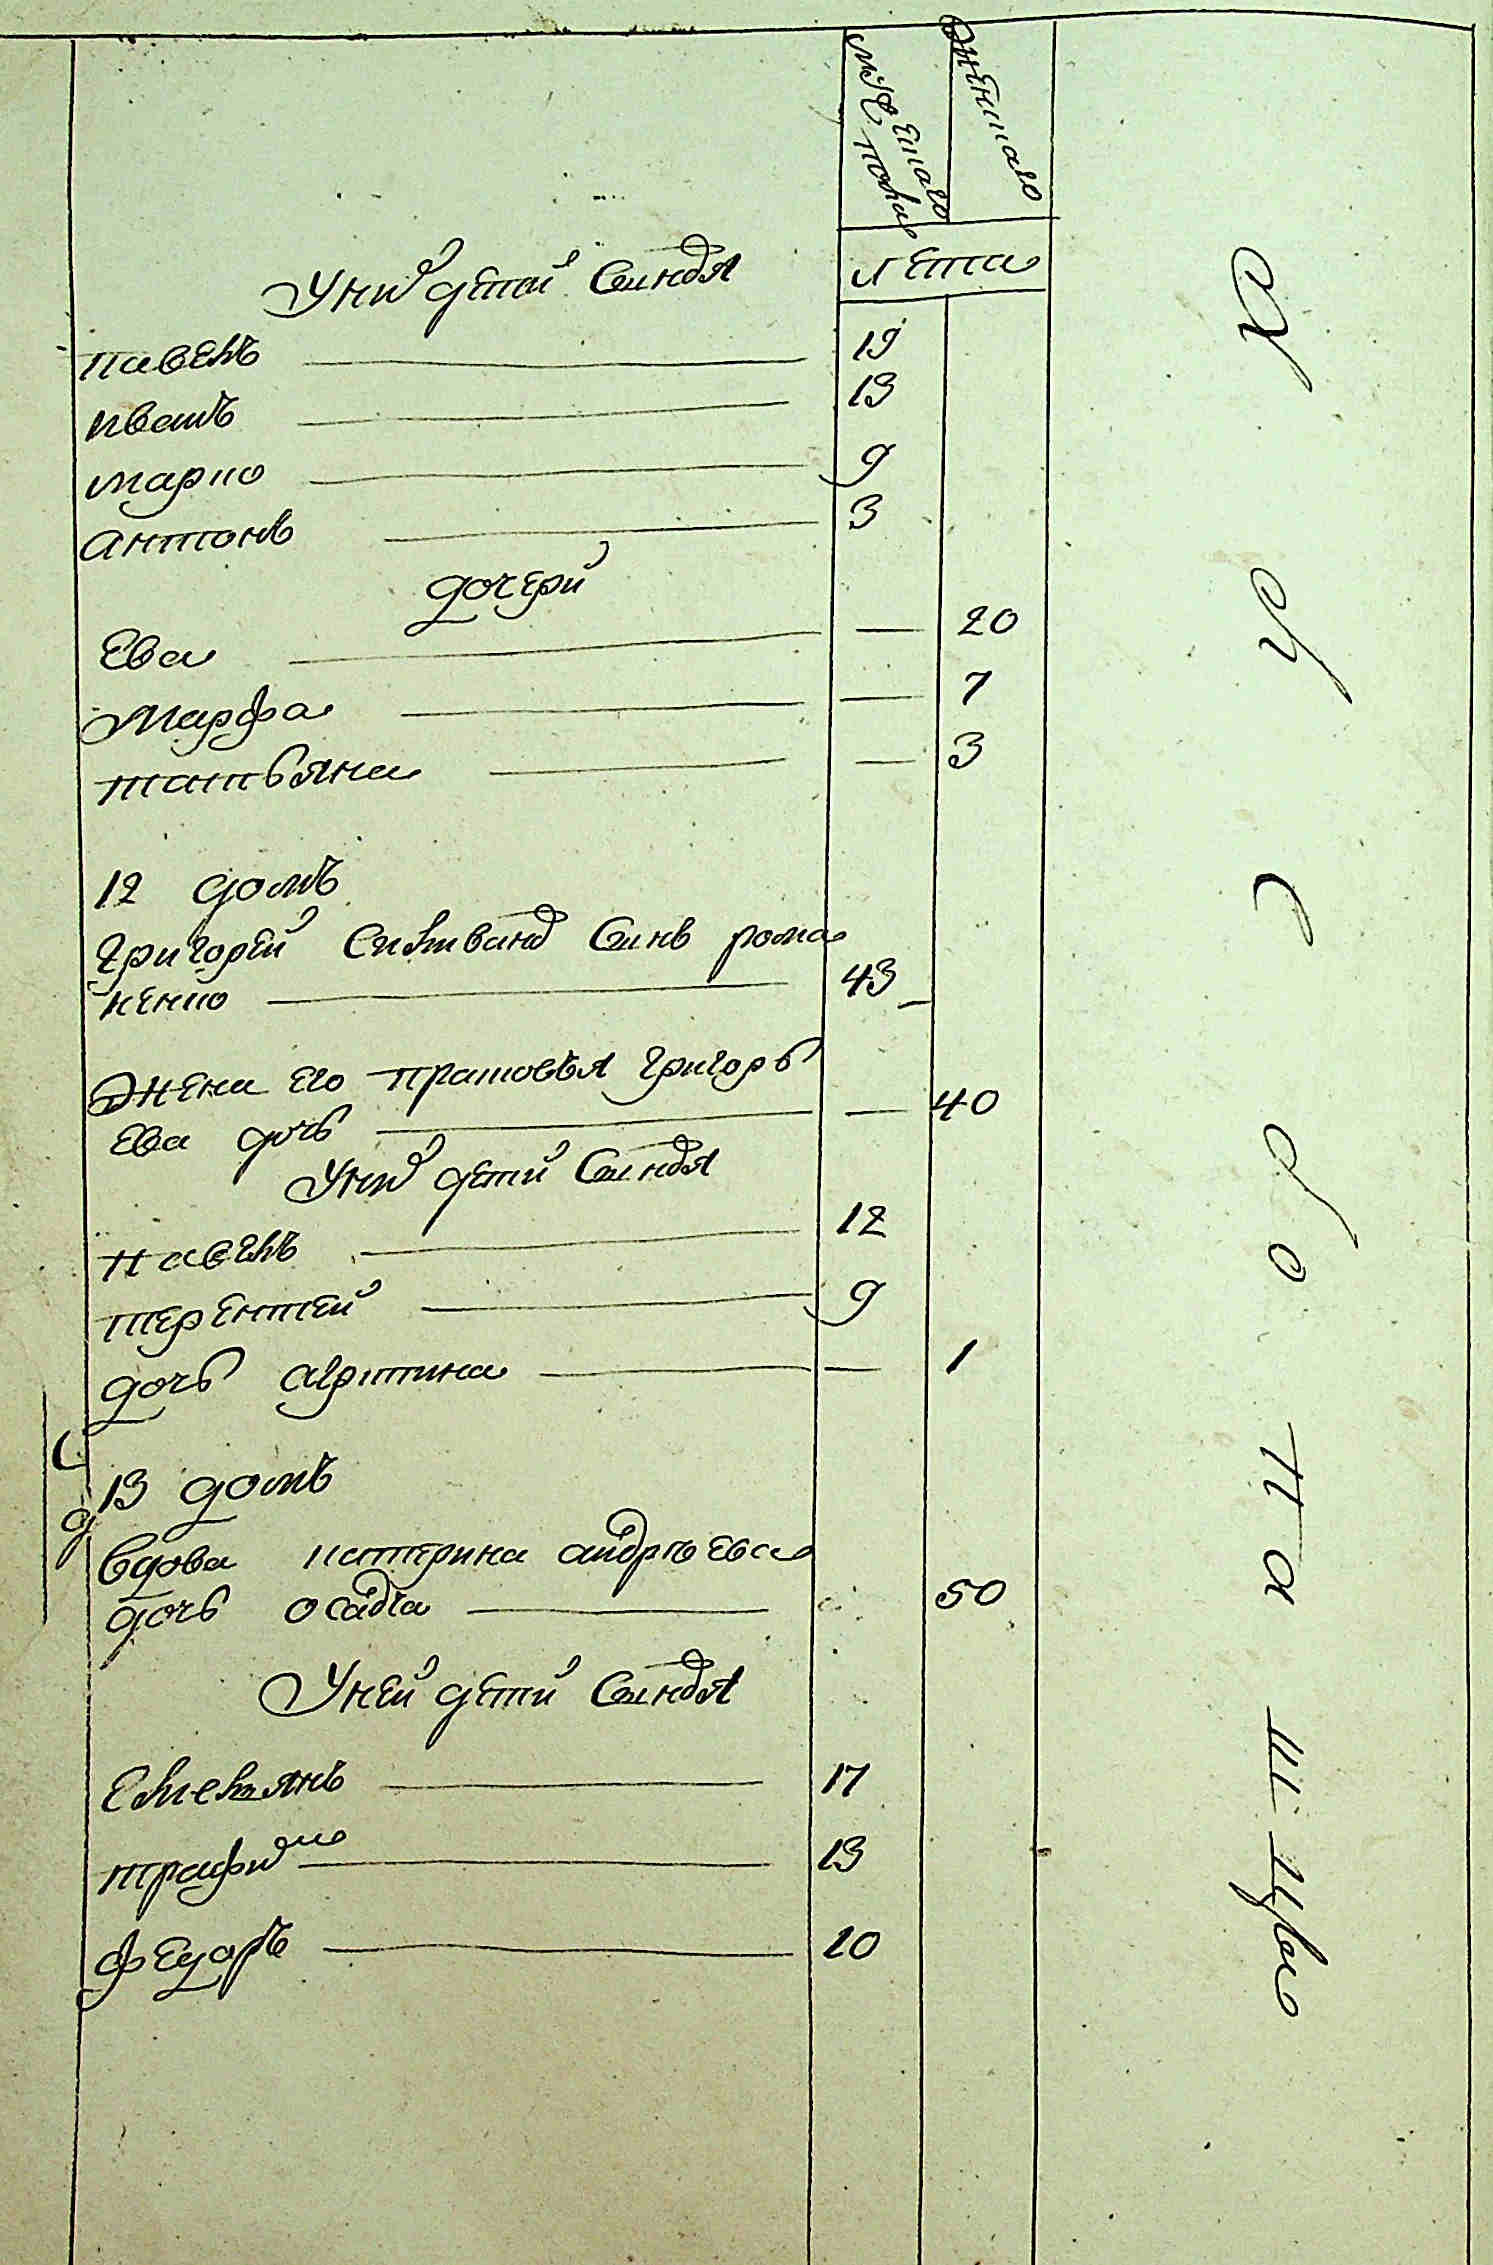 мужескаго полу
женскаго
лета
У них детей синовя
павелъ 19
иванъ 13
марко 9
антонъ 3
дочери
Ева — 20
Марфа — 7
татьяна — 3
12 домъ
григорей синъ рома
ненко 43 —
жена его прасковья григорь
ева дочь — 40
У них дети синовя
павелъ 12
терентей 9
дочь — 1
13 домъ
вдова катерина андрѣева
дочь осадча 50
У ней дети синовя
Емельянъ 17
трафим 13
федоръ 10